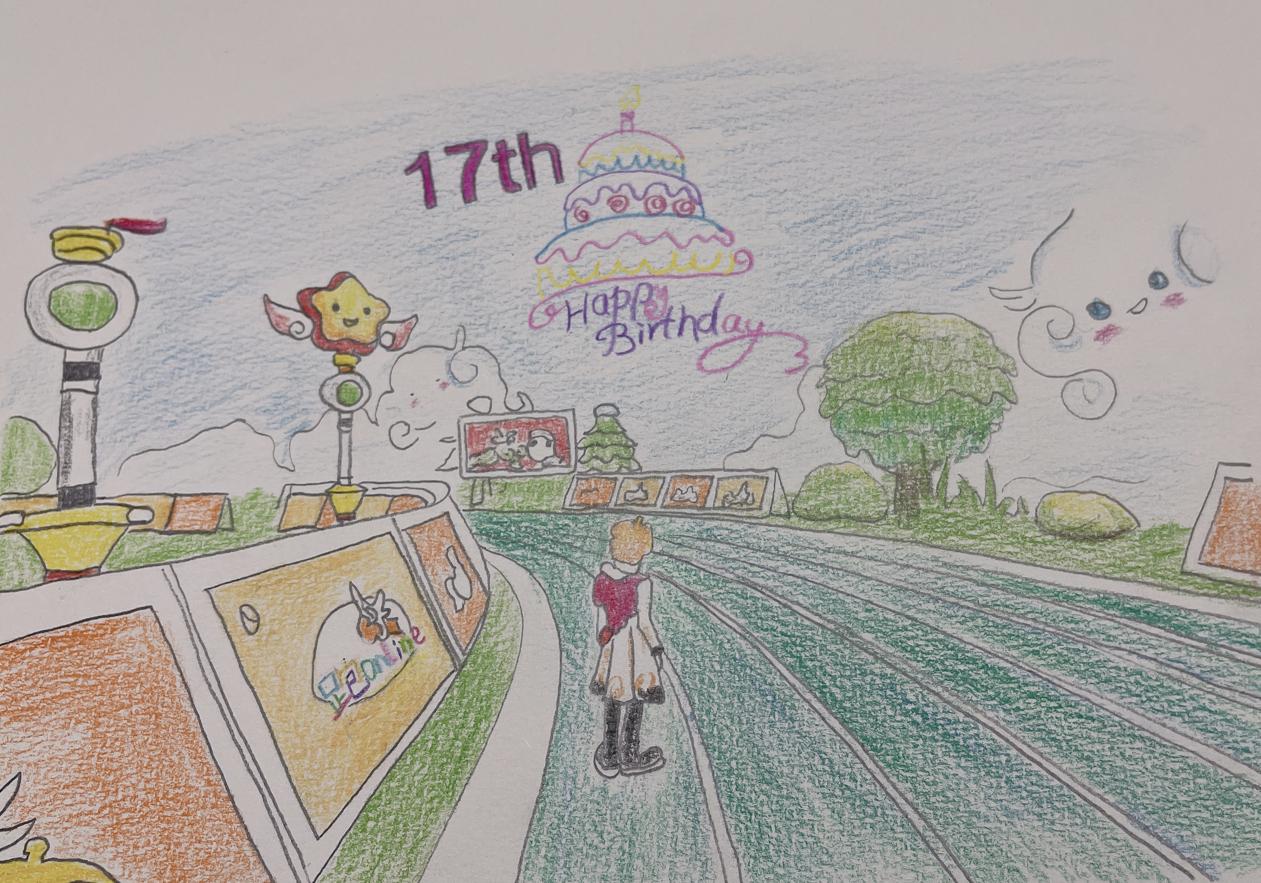 17th
Happy
Birthday
online